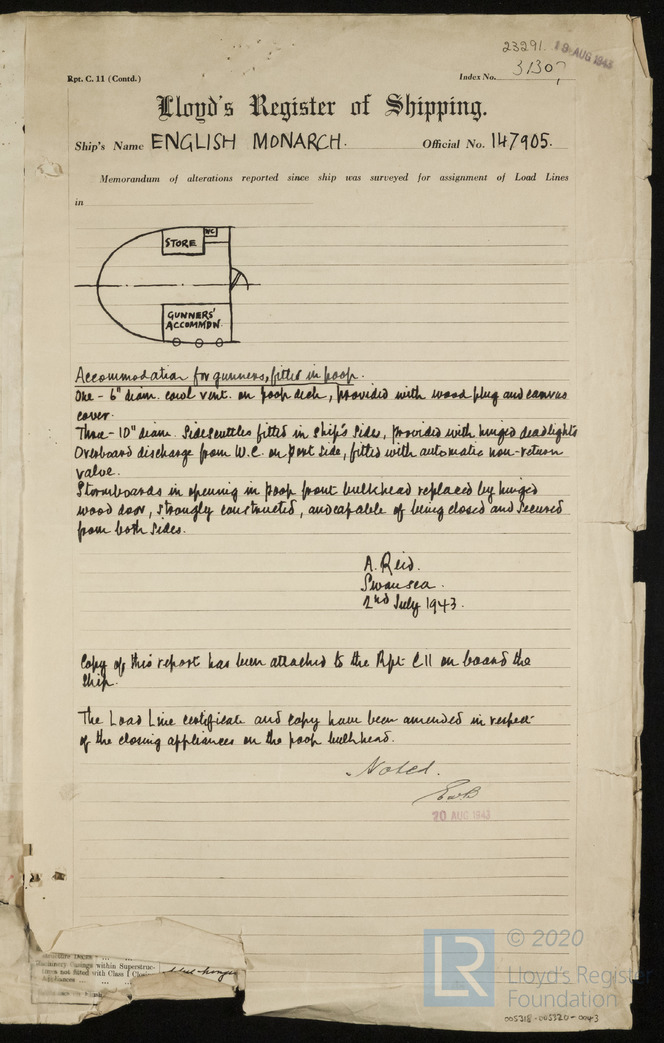 23291. 19 AUG 1943
Rpt. C. 11 (Contd.)
Index No. 31307
Lloyd's Register of Shipping.
Ship's Name ENGLISH MONARCH. Official No. 147905.
Memorandum of alterations reported since ship was surveyed for assignment of Load Lines
in
STORE
WC
GUNNERS'
ACCOMMDN
Accommodation for gunners, fitted in poop.
One - 6" diam. cowl vent. on poop deck, provided with wood plug and canvas
cover.
Three - 10" diam. sidescuttles fitted in ship's sides, provided with hinged deadlights
Overboard discharge from W.C. on port side, fitted with automatic non-return
valve.
Stormboards in opening in poop front bulkhead replaced by hinged
wood door, strongly constructed, and capable of being closed and secured
from both sides.
A. Reid.
Swansea.
2nd July 1943.
Copy of this report has been attached to the Rpt C11 on board the
ship.
The Load Line certificate and copy have been amended in respect
of the closing appliances on the poop bulkhead.
Noted.
20 AUG 1943
Machinery Casings within Superstruc-
tures not fitted with Class I Closing
Appliances
LR
© 2020
Lloyd's Register
Foundation
005318-005320-0043